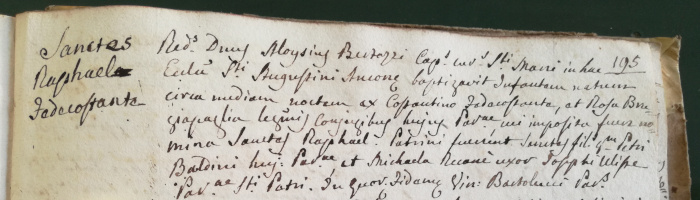 Sanctes
Raphael
Fedecostante
195
Red.s Dnus Aloysius Bertozzi Cap.s cur.s Sti Marci in hac
Eccla Sti Augustini Anconę baptizavit Infantem natum
circa mediam noctem ex Costantino Fedecostante, et Rosa Bru
giapaglia legmis Conjugibus hujus Par.ae cui imposita fuere no
mina Sanctes Raphael. Patrini fuerunt Sanctes fil. qm Petri
Baldini huj. Par.ae et Michaela uxor Josephi
Par.ae Sti Petri. In quor. Fidem Vin. Bartolucci Par.s